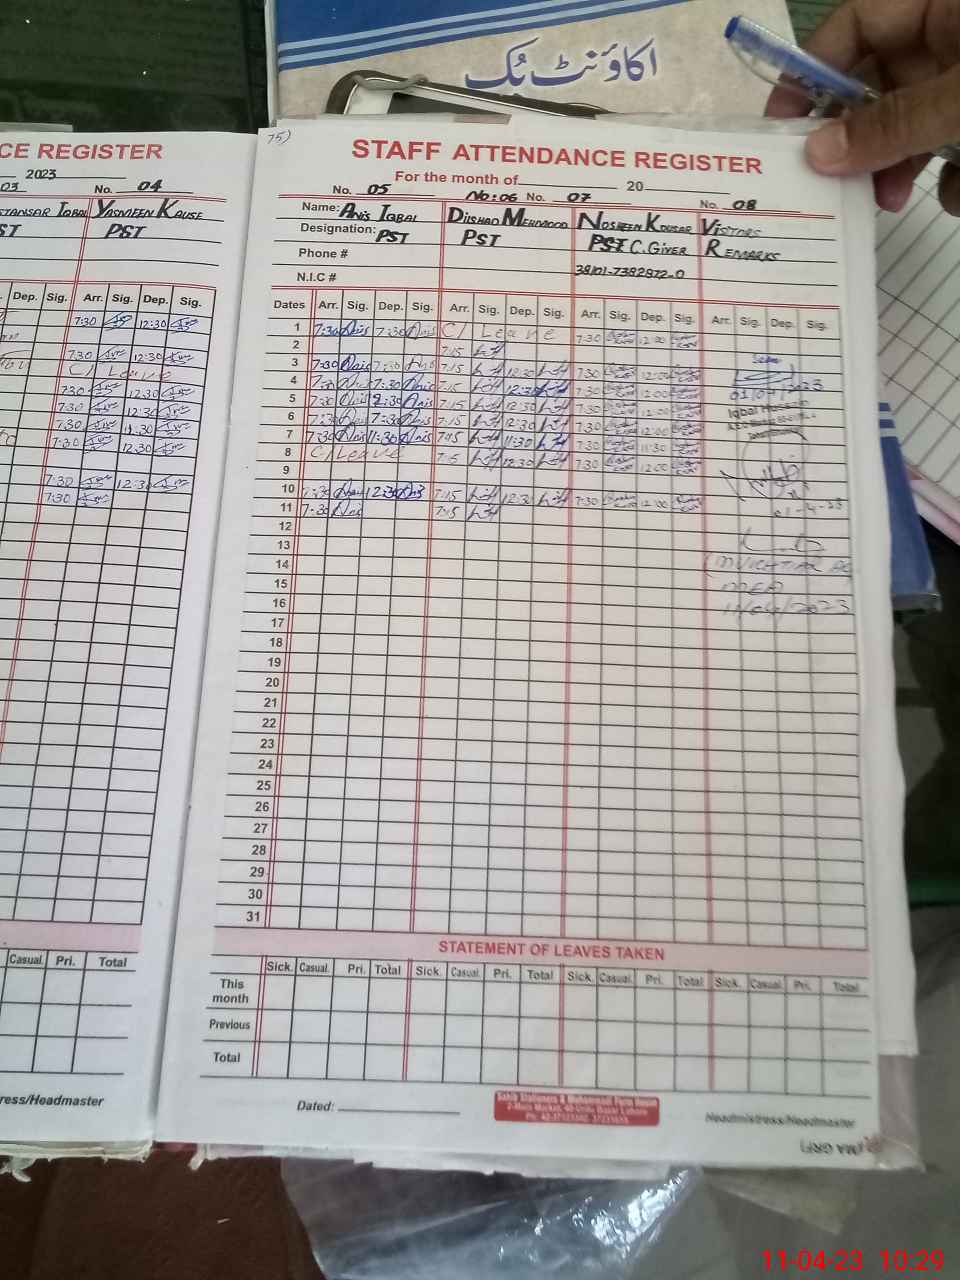 اکاؤنٹ بُک
CE REGISTER
2023
03 No. 04
IQBAL YASMEEN KAUSE
ST PST
Dep. Sig. Arr. Sig. Dep. Sig.
7:30 12:30
7:30 12:30
C/ Leave
7:30 12:30
7:30 12:30
7:30 11:30
7:30 12:30
7:30 12:30
7:30
Casual. Pri. Total
ress/Headmaster
75)
STAFF ATTENDANCE REGISTER
For the month of 20
No. 05 No:06 No. 07 No. 08
Name: ANIS IQBAL DILSHAD MEHMOOD NOSHEEN KOUSAR VISITORS
Designation: PST PST PST C.GIVER REMARKS
Phone #
N.I.C # 38101-7382872-0
Dates Arr. Sig. Dep. Sig. Arr. Sig. Dep. Sig. Arr. Sig. Dep. Sig. Arr. Sig. Dep. Sig.
1 7:30 Anis 7:30 Anis C/ Leave 7:30 12:00
2 7:15
3 7:30 Anis 7:30 Anis 7:15 12:30 7:30 12:00
4 7:30 Anis 7:30 Anis 7:15 12:30 7:30 12:00
5 7:30 Anis 12:30 Anis 7:15 12:30 7:30 12:00
6 7:30 Anis 7:30 Anis 7:15 12:30 7:30 12:00
7 7:30 Anis 11:30 Anis 7:15 11:30 7:30 11:30
8 C/Leave 7:15 12:30 7:30 12:00
9
10 7:30 Anis 12:30 Anis 7:15 12:30 7:30 12:00
11 7:30 Anis 7:15
12
13
14
15
16
17
18
19
20
21
22
23
24
25
26
27
28
29
30
31
Seen
Iqbal Hussain
01-4-23
MEA
11/04/2023
STATEMENT OF LEAVES TAKEN
Sick. Casual. Pri. Total Sick. Casual. Pri. Total Sick. Casual. Pri. Total Sick. Casual. Pri. Total
This month
Previous
Total
Dated:
Sahib Stationers & Muhammadi Form House
2-Main Market, 40-Urdu Bazar Lahore
Headmistress/Headmaster
11-04-23 10:29